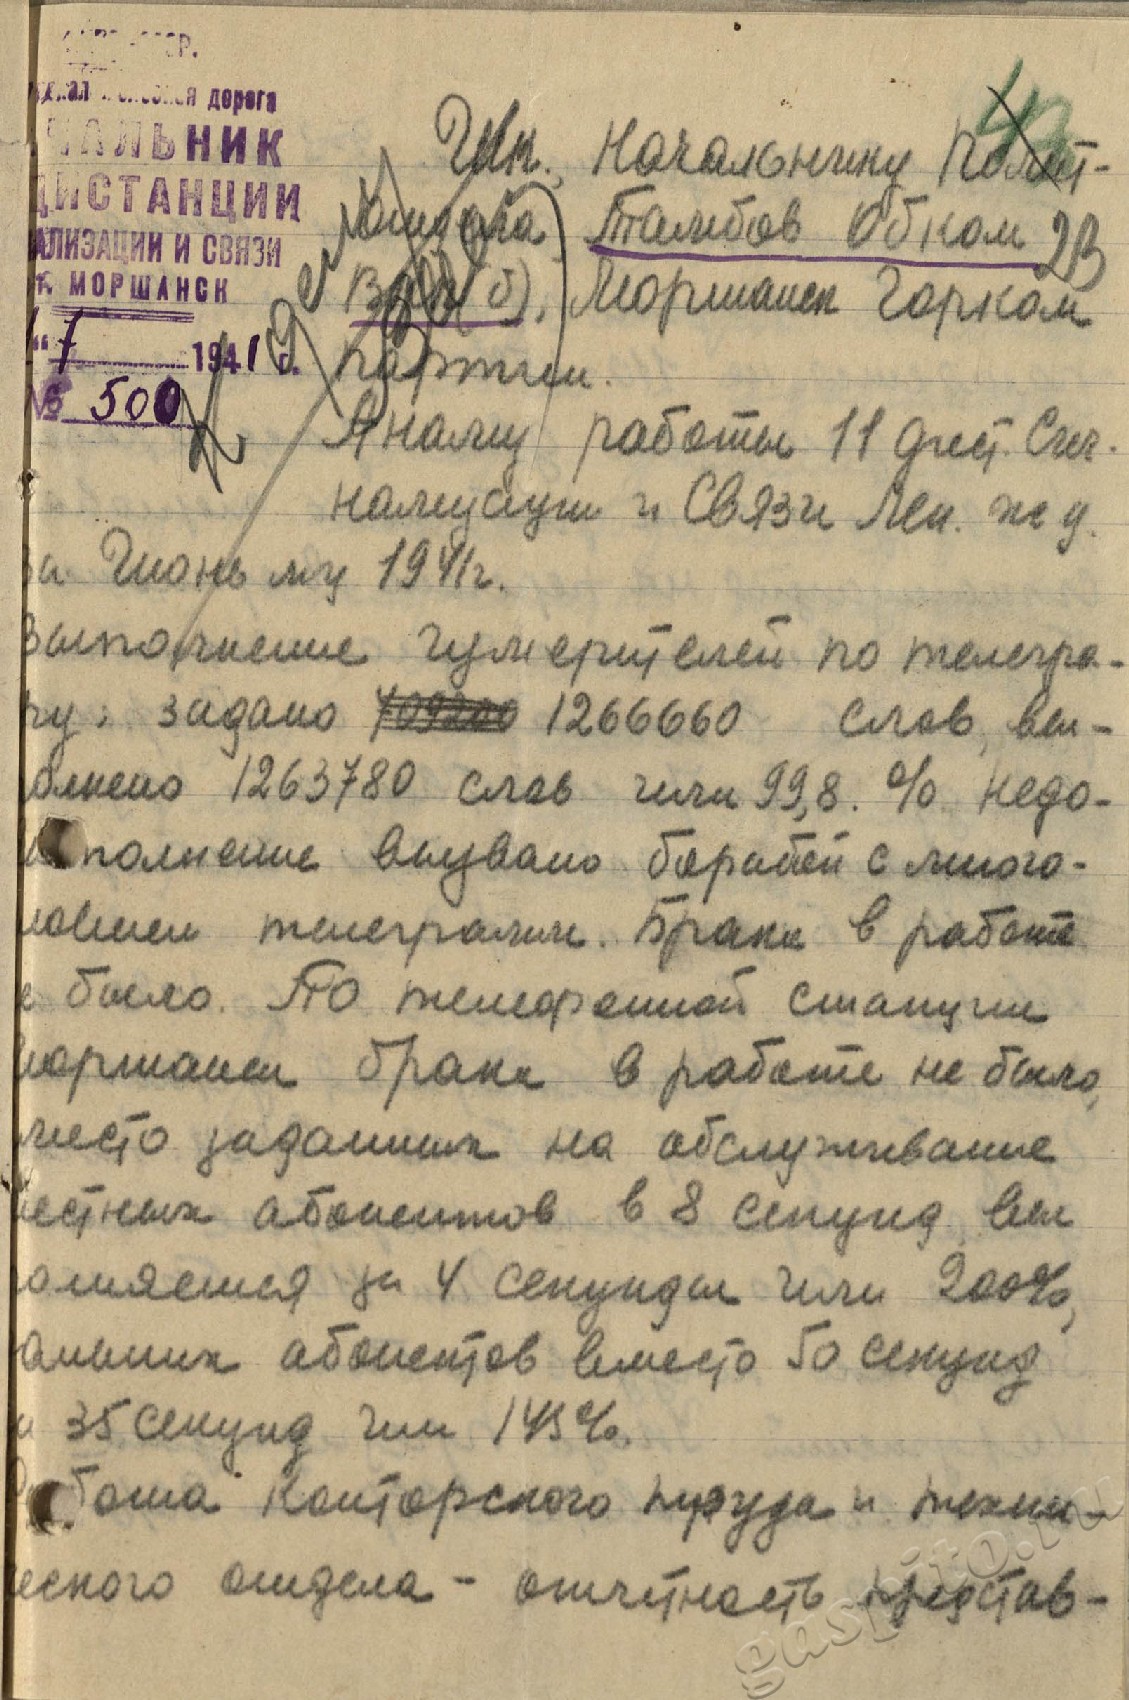 дорога
ЧАЛЬНИК
ДИСТАНЦИИ
АЛИЗАЦИИ И СВЯЗИ
г. МОРШАНСК
"7 1941 г.
№ 500
43
Начальнику Полит-
отдела, Тамбов Обком
23
ВКП(б), Моршанск Горком
партии.
Анализ работы 11 дист. Сиг-
нализации и Связи Лен. ж д.
за Июнь м-ц 1941г.
Выполнение измерителей по телегра-
фу: задано 709200 1266660 слов, вы-
олнено 1263780 слов или 99,8. % недо-
полнение вызвано борьбой с много-
ловием телеграмм. Брака в работе
е было. По телефонной станции
Моршанск брака в работе не было,
место заданных на обслуживание
естных абонентов в 8 секунд, вы
олняется за 4 секунды или 200%,
абонентов вместо 50 секунд
а 35 секунд или 143%.
Работа Конторского труда и техни-
еского отдела - отчетность представ-
gaspito.ru